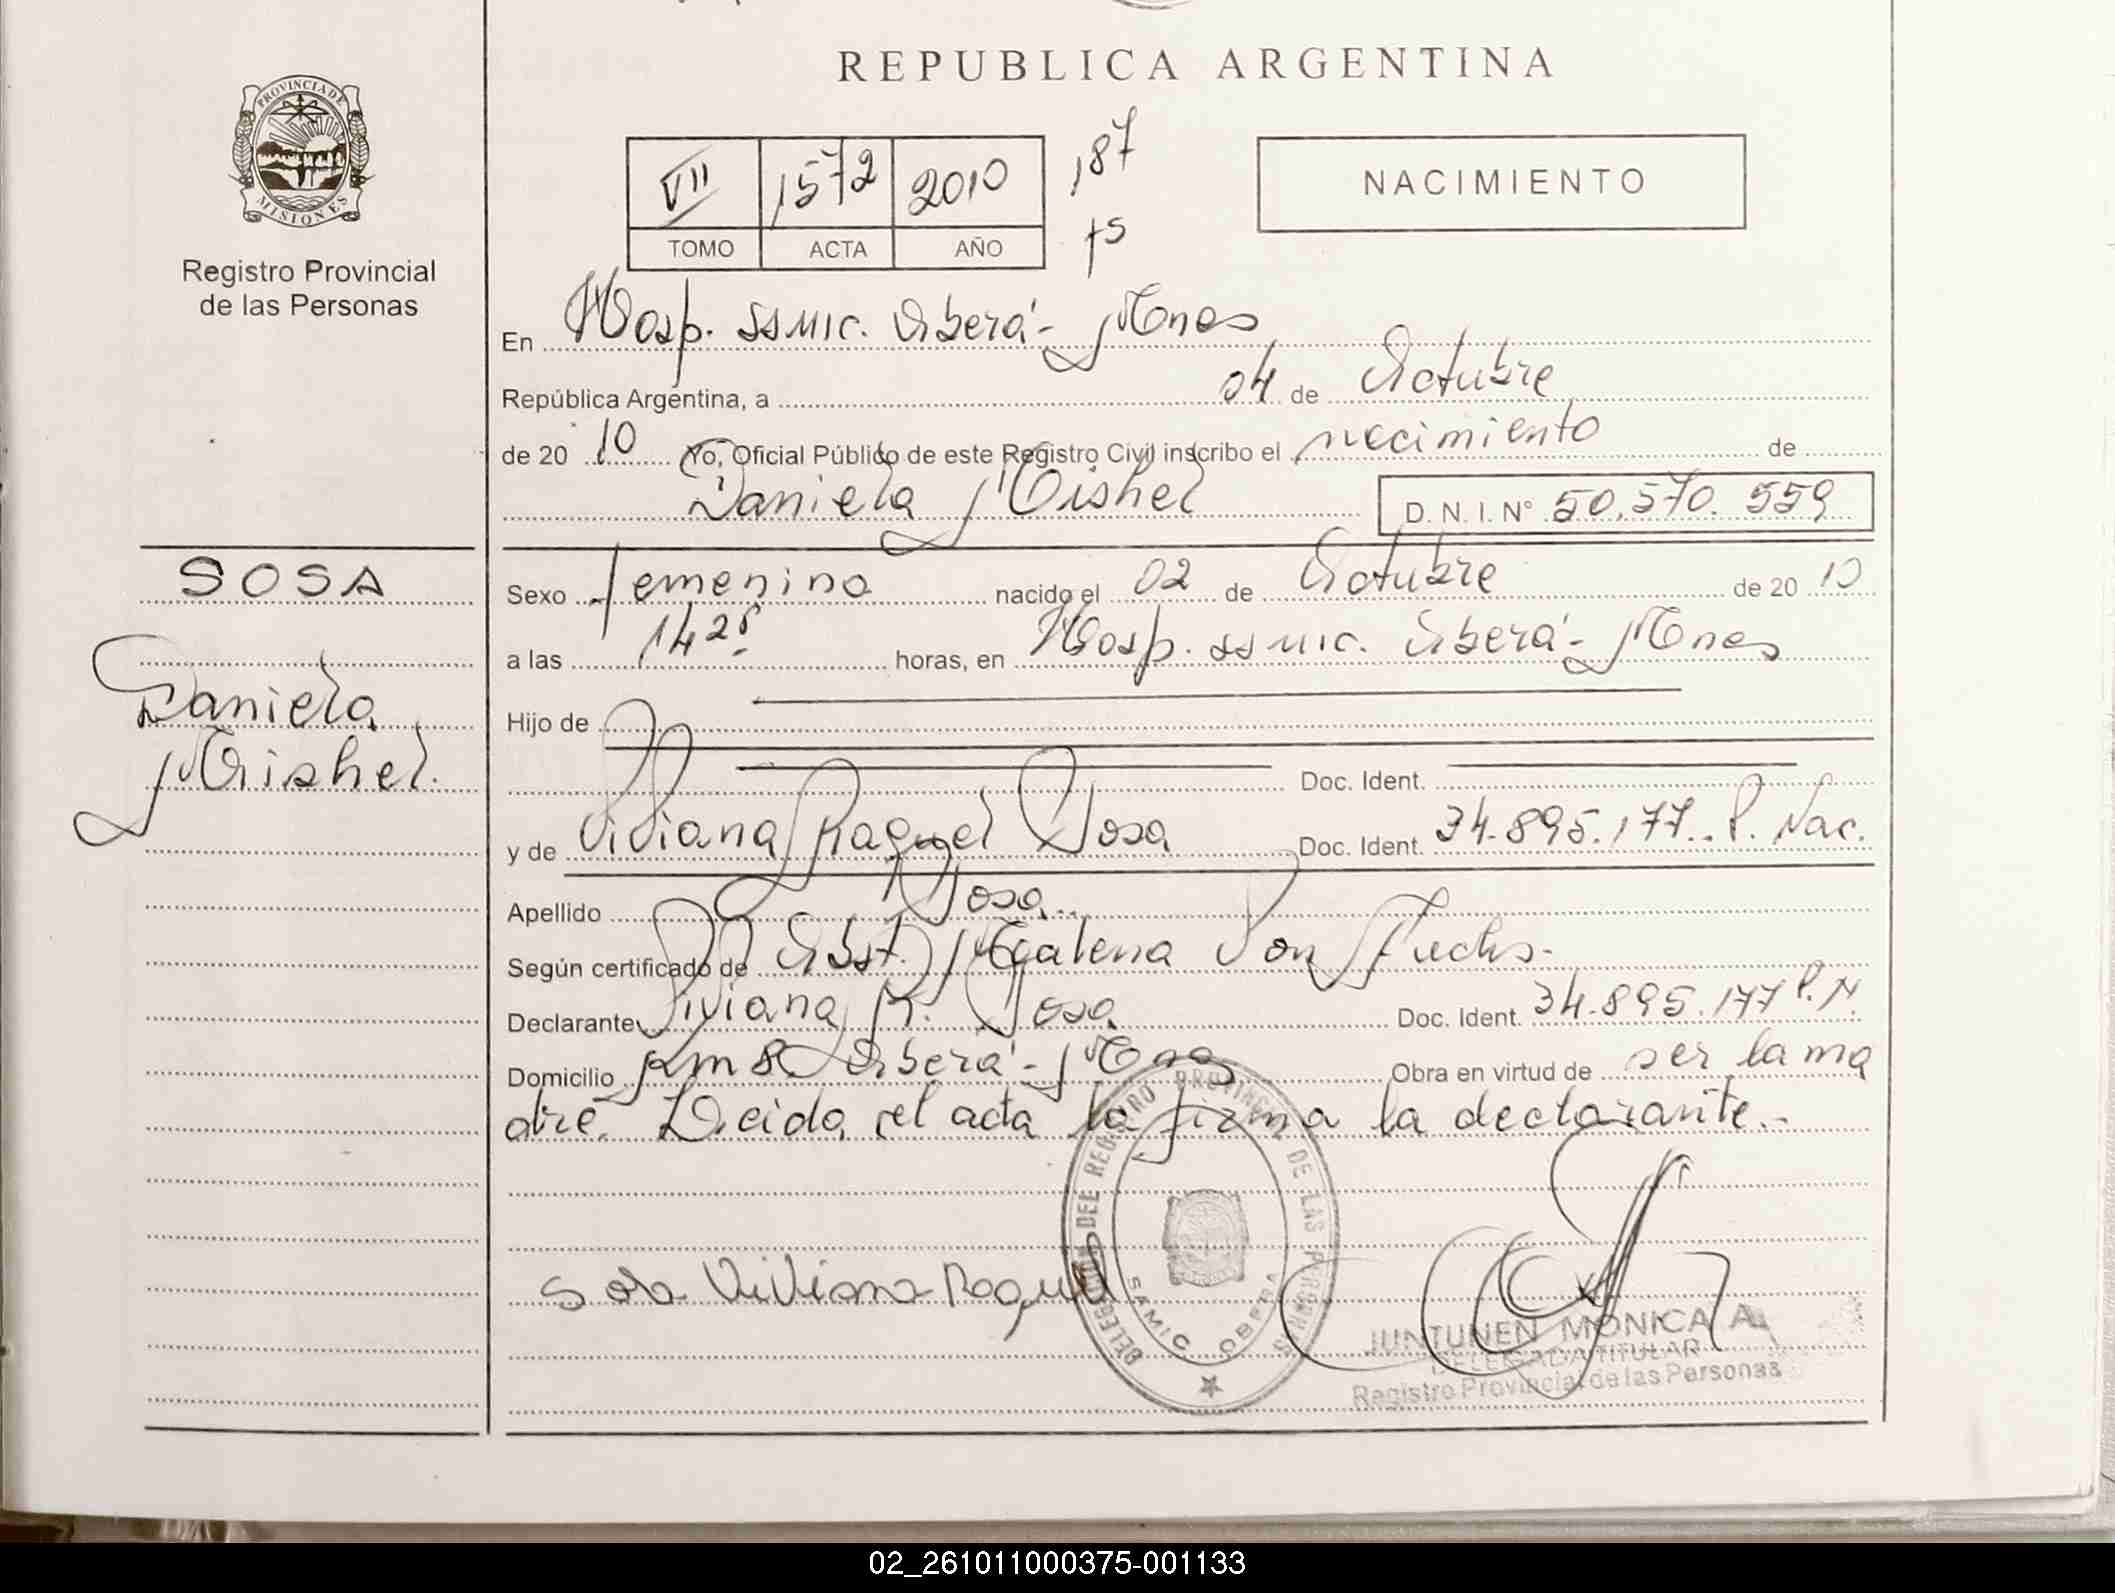 REPUBLICA ARGENTINA
PROVINCIA DE
MISIONES
Registro Provincial
de las Personas
VII 1572 2010
TOMO ACTA AÑO
187
75
NACIMIENTO
En Hosp. SSMIC. Oberá - Mnes
República Argentina, a 04 de Octubre
de 20 10 Yo, Oficial Público de este Registro Civil inscribo el nacimiento de
Daniela Mishel D. N. I. Nº 50.570.559
SOSA
Daniela
Mishel.
Sexo femenino nacido el 02 de Octubre de 20 10
a las 14 25 horas, en Hosp. ssmic. Oberá - Mnes
Hijo de
Doc. Ident.
y de Viviana Raquel Sosa Doc. Ident. 34.895.177. P. Nac.
Apellido Sosa
Según certificado de Obst. Von Fuchs.
Declarante Viviana R. Sosa Doc. Ident. 34.895.177 P. N
Domicilio Km 8 Oberá - Mnes Obra en virtud de ser la ma
dre. Leida el acta la firma la declarante.-
DELEGACION DEL REGISTRO PROVINCIAL DE LAS PERSONAS
SAMIC OBERA
Sosa Viviana Raquel
JUNTUNEN MONICA A.
DELEGADA TITULAR
Registro Provincial de las Personas
02_261011000375-001133